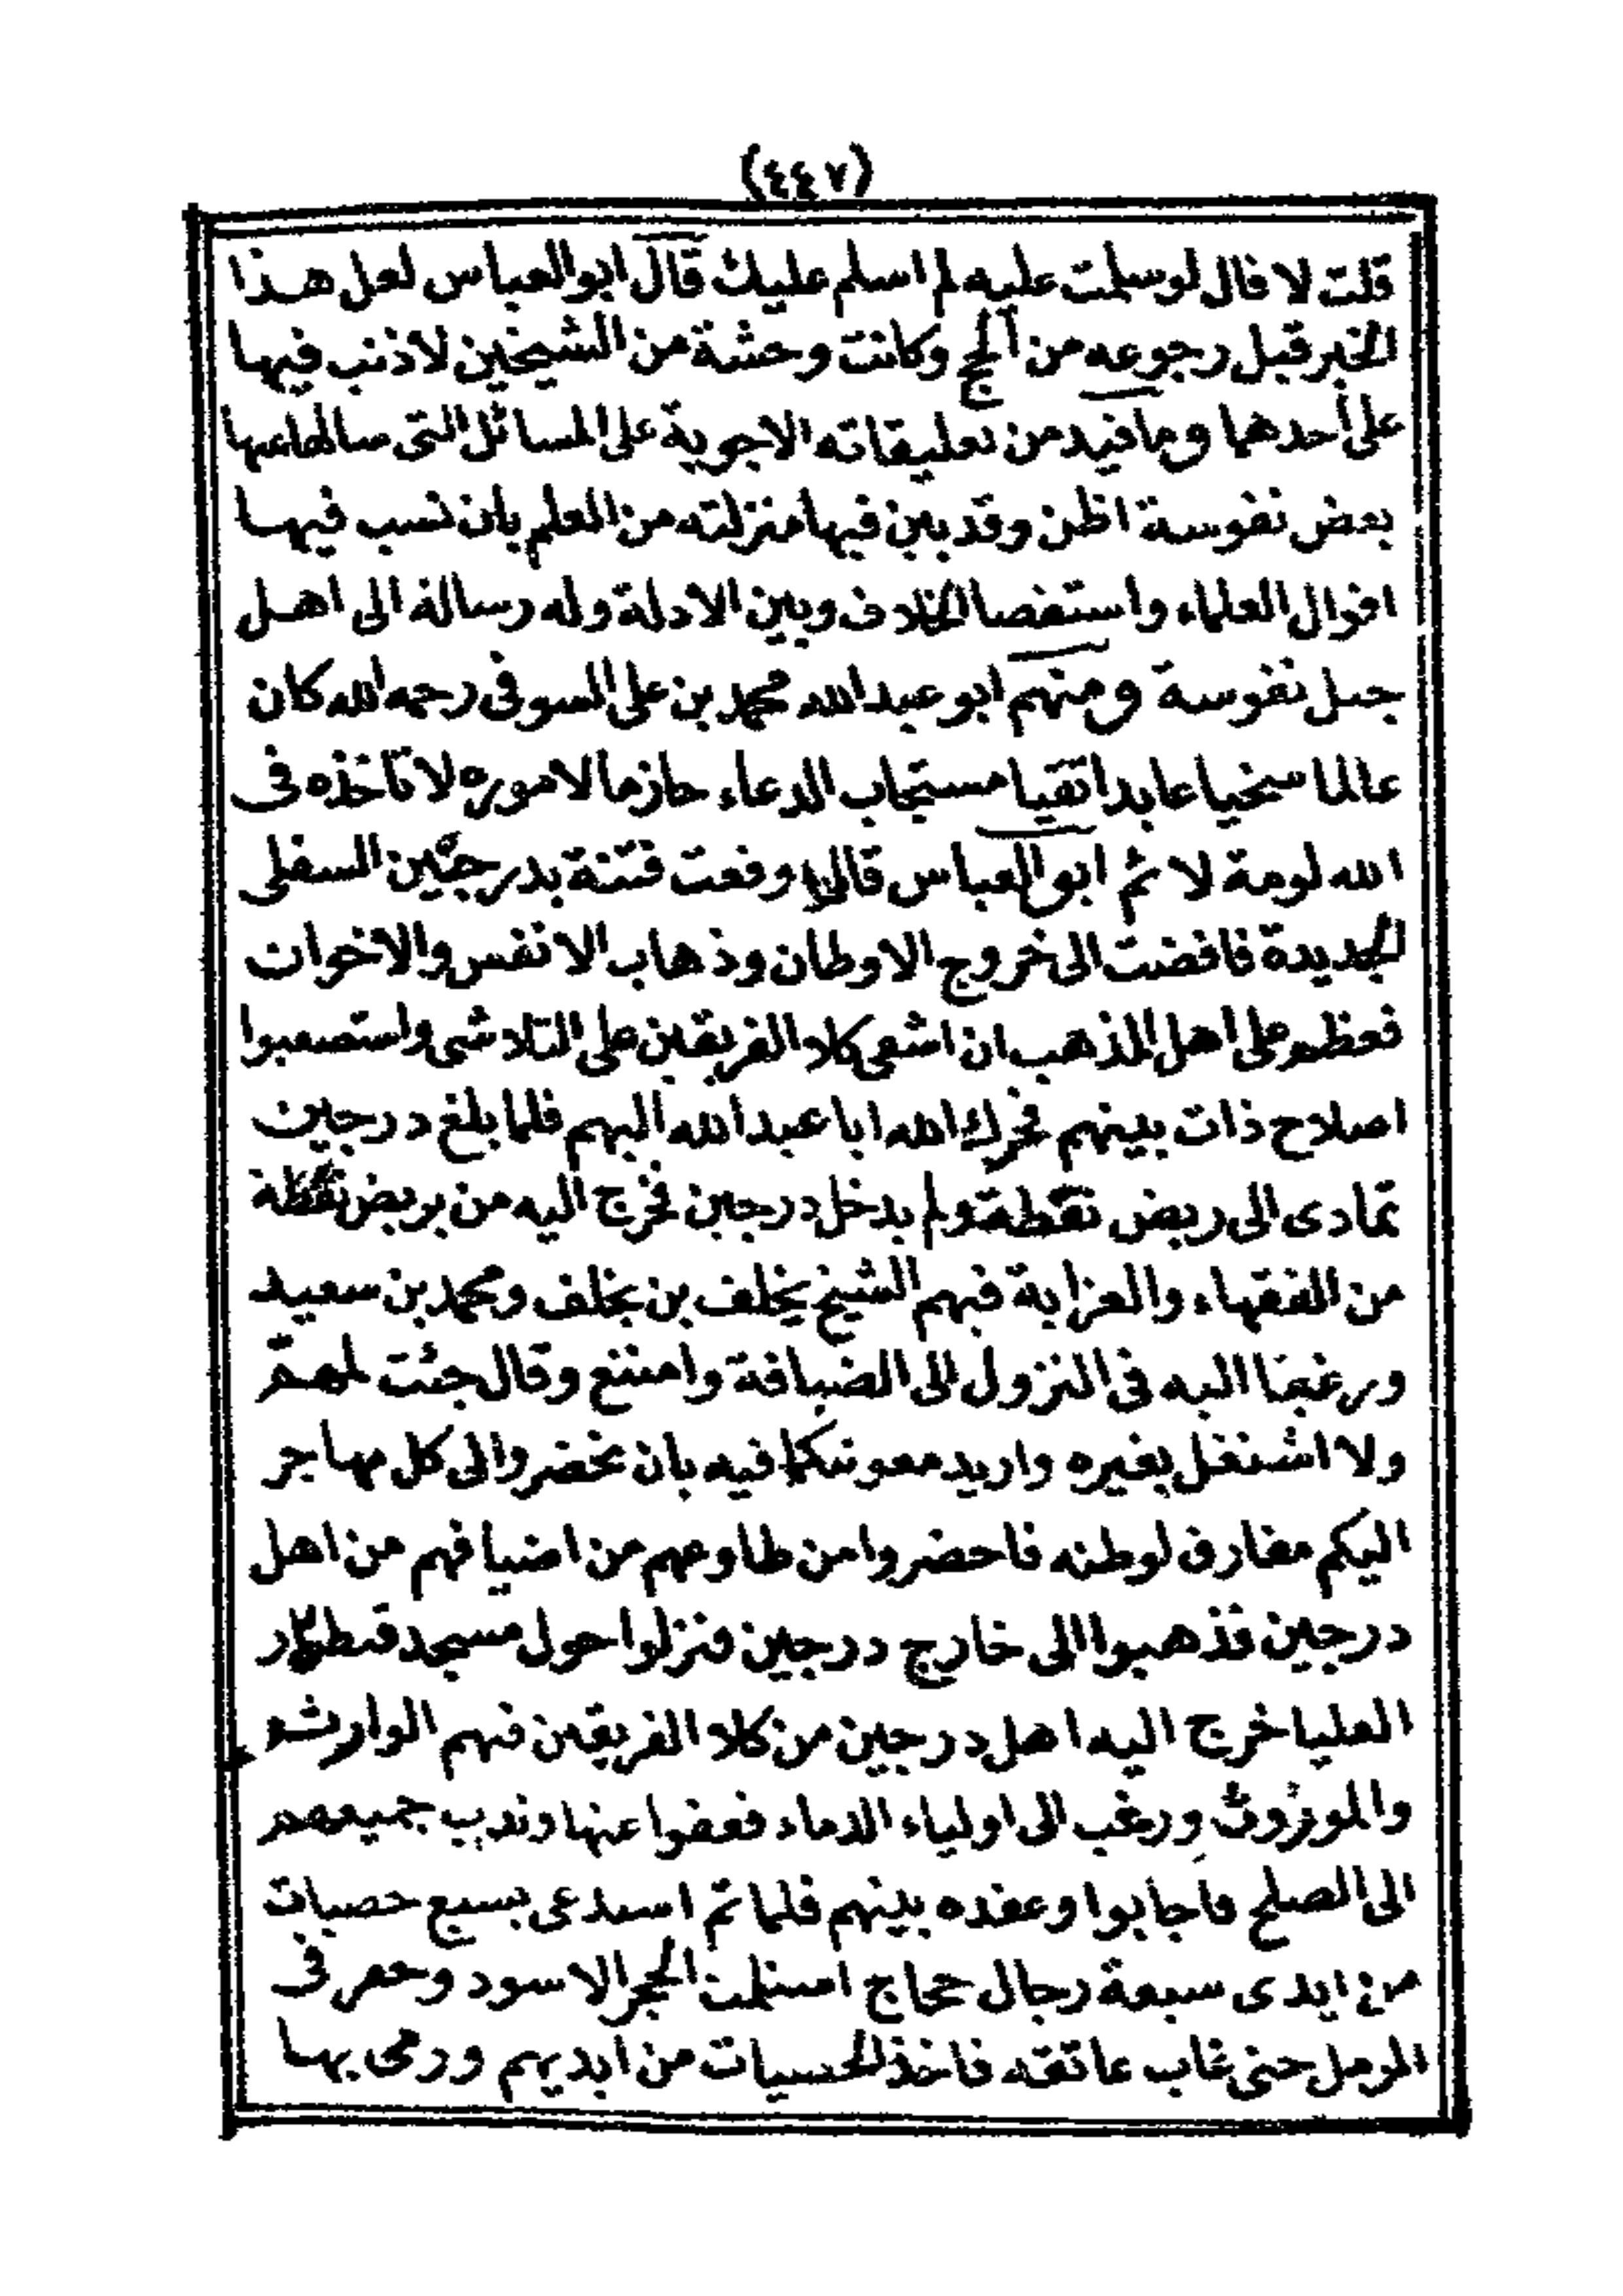 (٤٤٧)
قلت لا قال لو سلمت عليه لم اسلم عليك قال ابو العباس لعل هذا
الخبر قبل رجوعه من الحج وكانت وحشة من الشيخين لا ذنب فيها
على أحدهما ومما قيد من تعليقاته الاجوبة على المسائل التى سالها عنها
بعض نفوسة اظن وقد بين فيها منزلته من العلم بان نسب فيها
اقوال العلماء واستقصا الخلاف وبين الادلة وله رسالة الى اهل
جبل نفوسة ومنهم ابو عبد الله محمد بن على السوفى رحمه الله كان
عالما سخيا عابدا تقيا مستجاب الدعاء حازما لاموره لا تأخذه فى
الله لومة لائم ابو العباس قال وقعت فتنة بدرجين السفلى
الجديدة فافضت الى خروج الاوطان وذهاب الانفس والاخوان
فعظم على اهل المذهب ان اشفى كلا الفريقين على التلاشى واستصعبوا
اصلاح ذات بينهم فحرك الله ابا عبد الله اليهم فلما بلغ درجين
تمادى الى ربض نقطة ولم يدخل درجين فخرج اليه من بربض نقطة
من الفقهاء والعزابة فيهم الشيخ يخلف بن يخلف ومحمد بن سعيد
ورغبا اليه فى النزول الى الضيافة وامتنع وقال جئت لمهم
ولا اشتغل بغيره واريد معونتكما فيه بان تحضروا الى كل مهاجر
اليكم مفارق لوطنه فاحضروا من طاوعهم من اضيافهم من اهل
درجين فذهبوا الى خارج درجين فنزلوا حول مسجد
العليا خرج اليه اهل درجين من كلا الفريقين فيهم الوارث
والموروث ورغب الى اولياء الدماء فعفوا عنها وندب جميعهم
الى الصلح فاجابوا وعقده بينهم فلما تم استدعى بسبع حصيات
من ايدى سبعة رجال حجاج استلمت الحجر الاسود وحفر فى
الرمل حتى غاب عاتقه فاخذ الحسيات من ايديهم ورمى بها